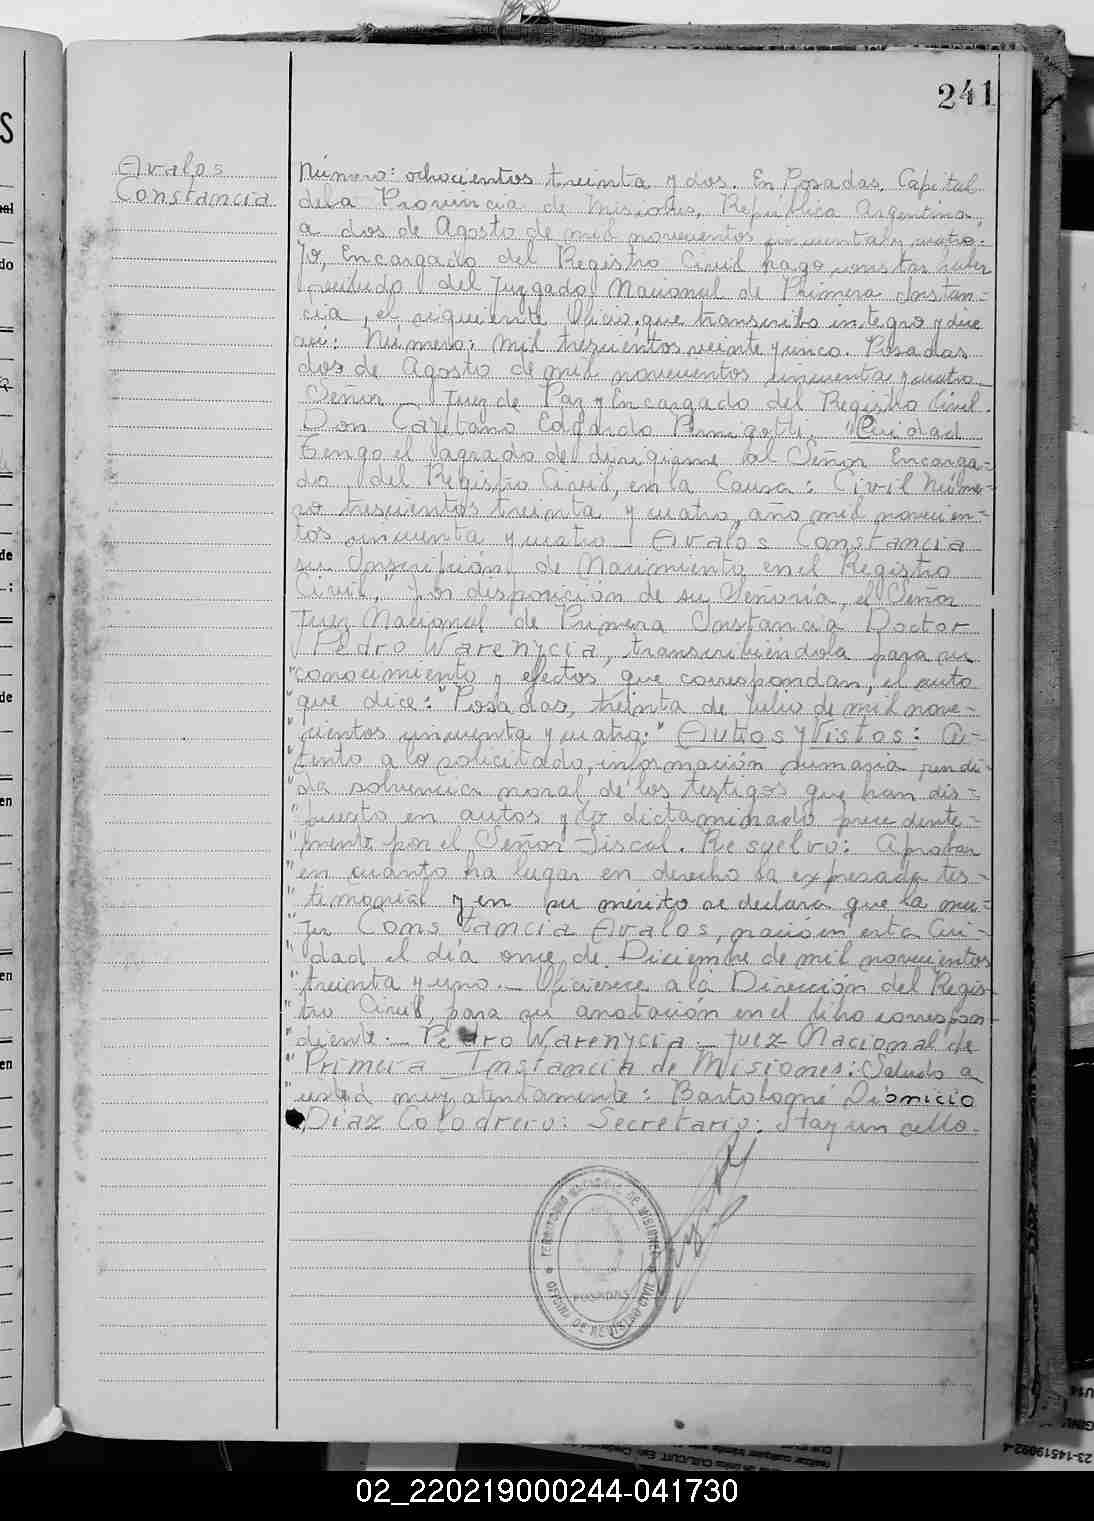 241
Avalos
Constancia
Número: ochocientos treinta y dos. En Posadas, Capital
dela Provincia de Misiones, República Argentina,
a dos de Agosto de mil novecientos cincuenta y cuatro.
Yo, Encargado del Registro Civil hago constar haber
recibido del Juzgado Nacional de Primera Instan-
cia, el siguiente Oficio, que transcribo integro y dice
así: Número: mil trescientos veinte y cinco. Posadas
dos de Agosto de mil novecientos cincuenta y cuatro.
Señor Juez de Paz y Encargado del Registro Civil.
Don Cayetano Edgardo "Ciudad
Tengo el agrado de dirigirme al Señor Encarga-
do del Registro Civil, en la Causa: Civil Núme-
ro trescientos treinta y cuatro, año mil novecien-
tos cincuenta y cuatro_ Avalos Constancia
su Inscripción de Nacimiento en el Registro
Civil," Por disposición de su Señoria, el Señor
Juez Nacional de Primera Instancia Doctor
Pedro Warenycia, transcribiendola para su
"conocimiento y efectos que correspondan, el auto
"que dice: "Posadas, treinta de Julio de mil nove-
"cientos cincuenta y cuatro." Autos y Vistos: A-
"tento a lo solicitado, información sumaria rendi-
"da solvencia moral de los testigos que han dis-
"puesto en autos y lo dictaminado precedente-
"mente por el Señor Fiscal. Resuelvo: Aprobar
"en cuanto ha lugar en derecho la expresada tes-
"timonial y en su mérito se declara que la mu-
"jer Constancia Avalos, nació en esta Ciu-
"dad el día once de Diciembre de mil novecientos
"treinta y uno._ Oficiesese a la Dirección del Regis-
"tro Civil, para su anotación en el libro correspon-
"diente._ Pedro Warenycia_ Juez Nacional de
"Primera Instancia de Misiones: Saludo a
"usted muy atentamente: Bartolomé Dionicio
Díaz Colodrero: Secretario: Hay un sello.
TERRITORIO NACIONAL DE MISIONES
POSADAS
OFICINA DE REGISTRO CIVIL
02_220219000244-041730